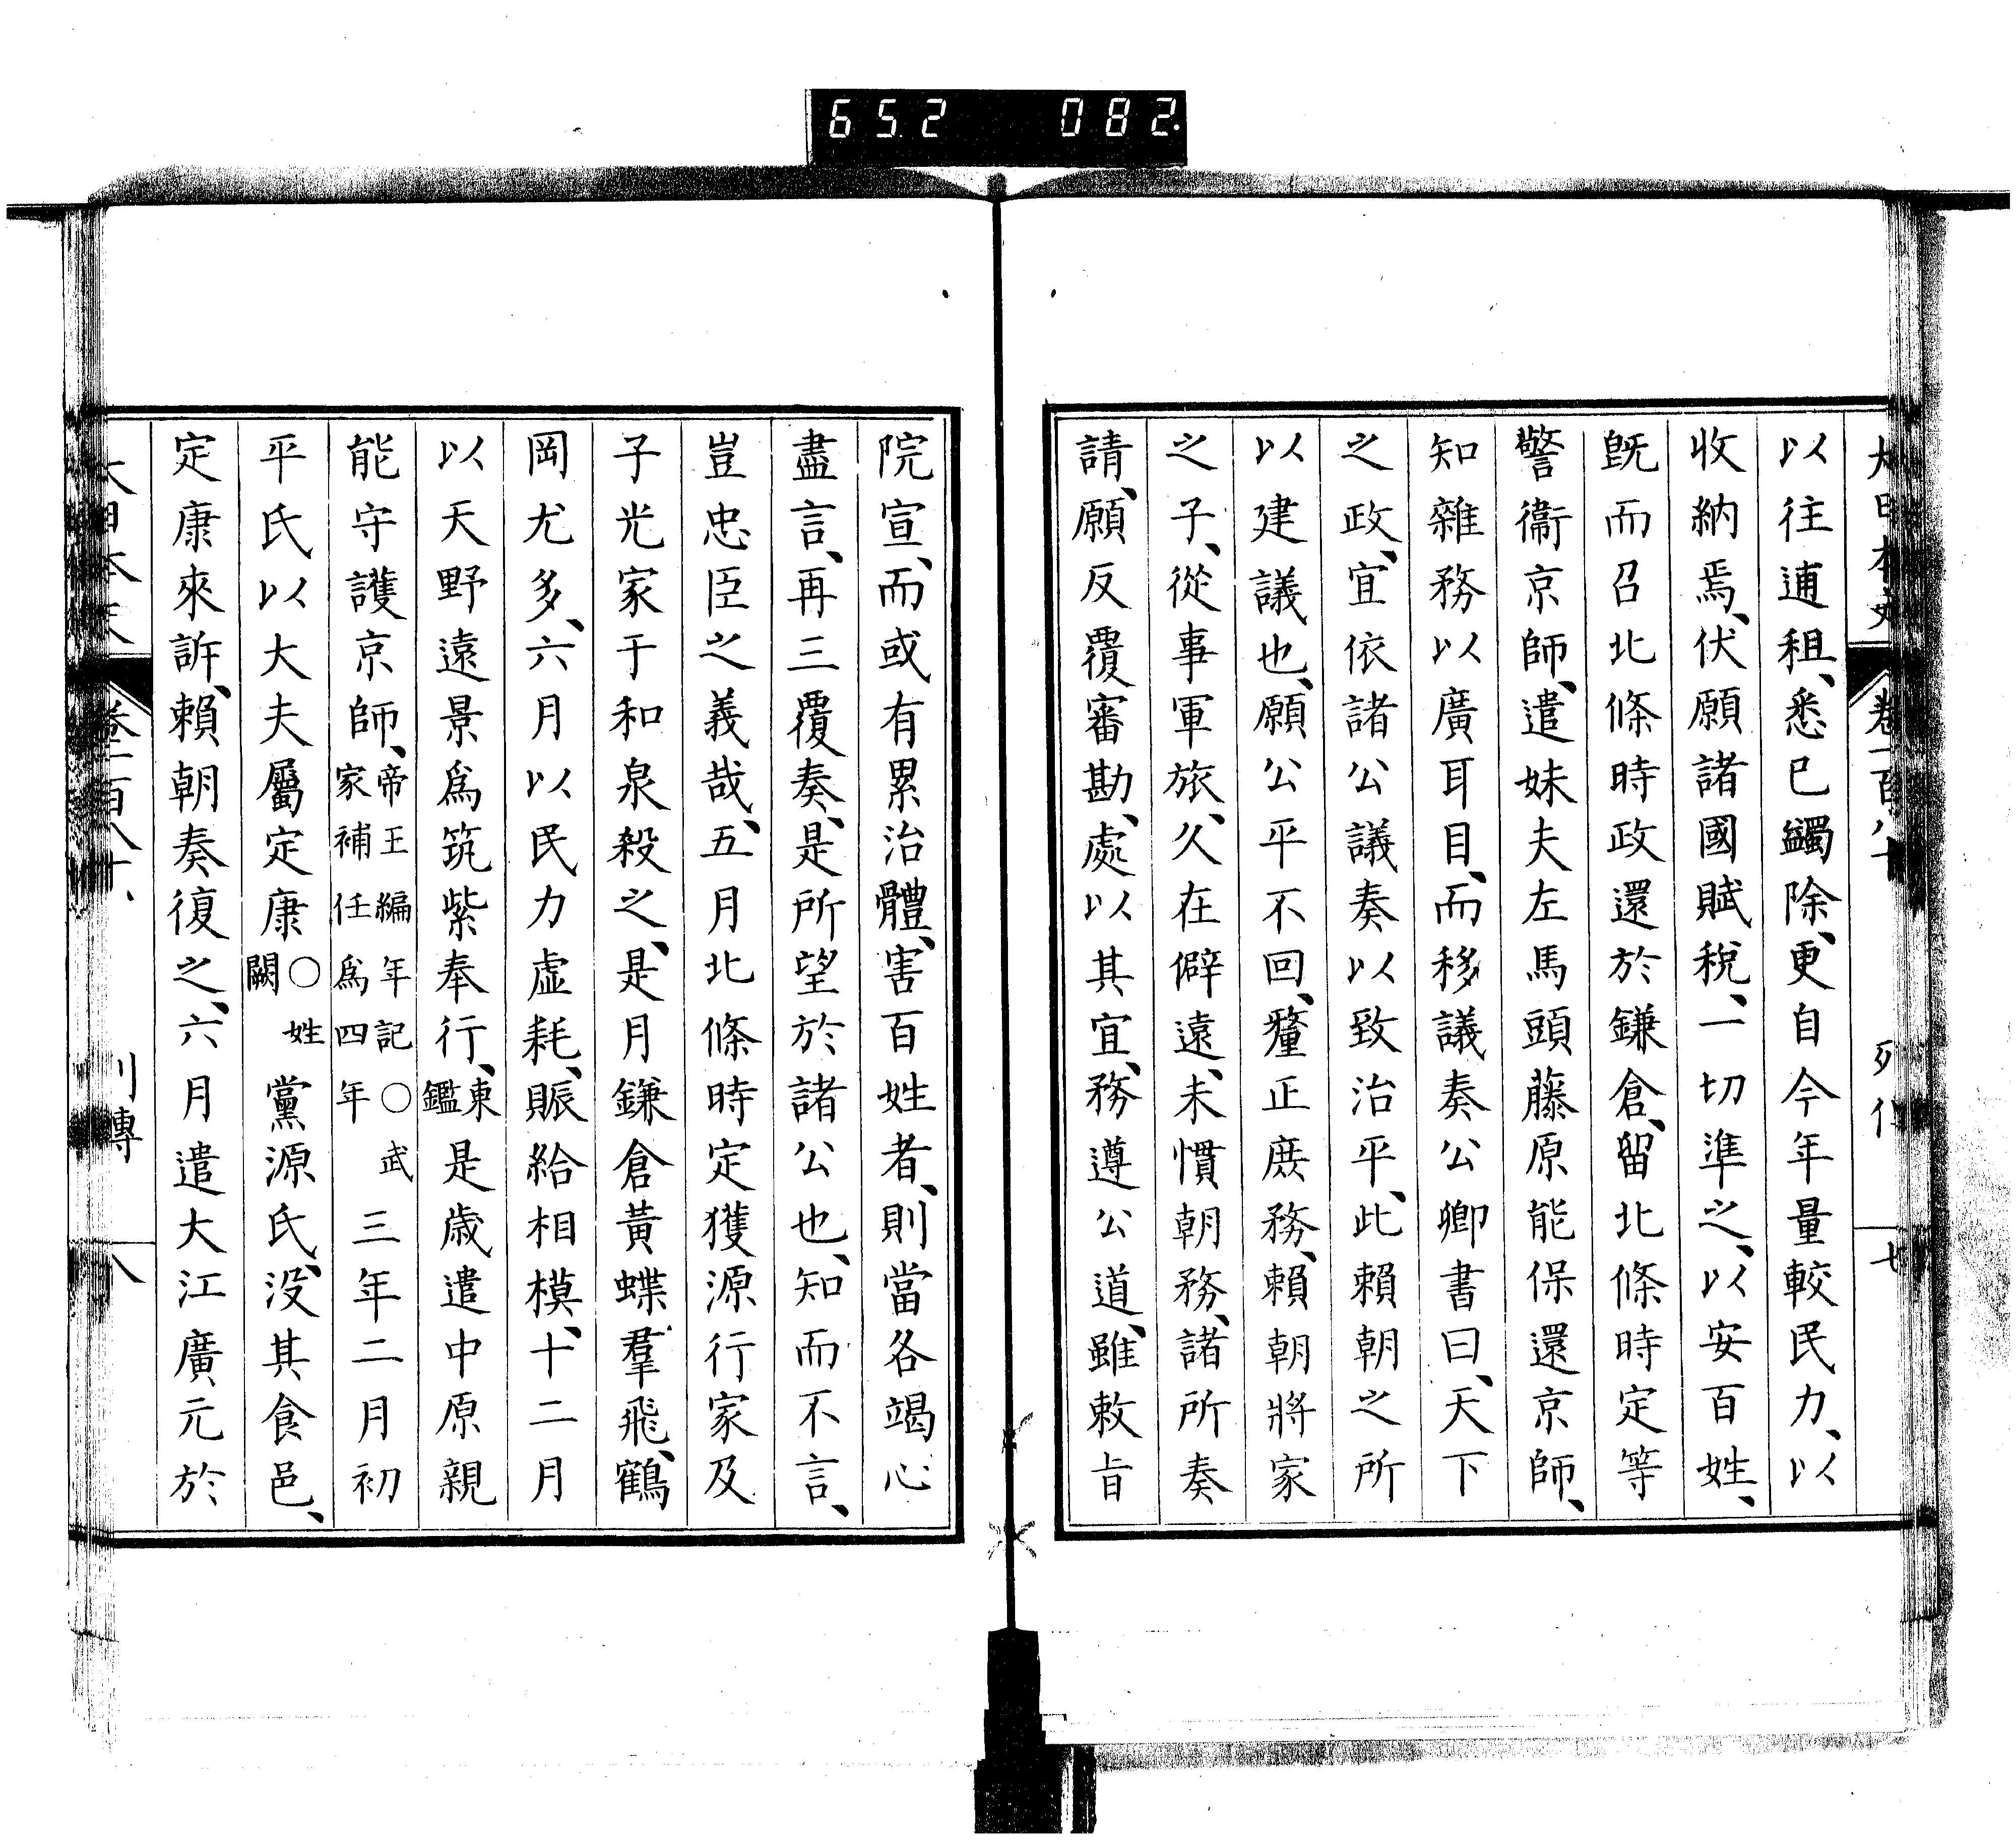 652 082.
以往逋租、悉已蠲除、更自今年量較民力、以
收納焉、伏願諸國賦稅、一切準之、以安百姓、
旣而召北條時政還於鎌倉、留北條時定等
警衞京師、遣妹夫左馬頭藤原能保還京師、
知雜務以廣耳目、而移議奏公卿書曰、天下
之政、宜依諸公議奏以致治平、此賴朝之所
以建議也、願公平不回、釐正庶務、賴朝將家
之子、從事軍旅、久在僻遠、未慣朝務、諸所奏
請、願反覆審勘、處以其宜、務遵公道、雖敕旨
院宣、而或有累治體、害百姓者、則當各竭心
盡言、再三覆奏、是所望於諸公也、知而不言、
豈忠臣之義哉、五月北條時定獲源行家及
子光家于和泉殺之、是月鎌倉黃蝶羣飛、鶴
岡尤多、六月以民力虛耗、賑給相模、十二月
以天野遠景爲筑紫奉行、東鑑是歲遣中原親
能守護京師、帝王編年記○武家補任爲四年三年二月初
平氏以大夫屬定康○姓闕黨源氏、沒其食邑、
定康來訴、賴朝奏復之、六月遣大江廣元於
大日本史 卷一百八十 列傳 八